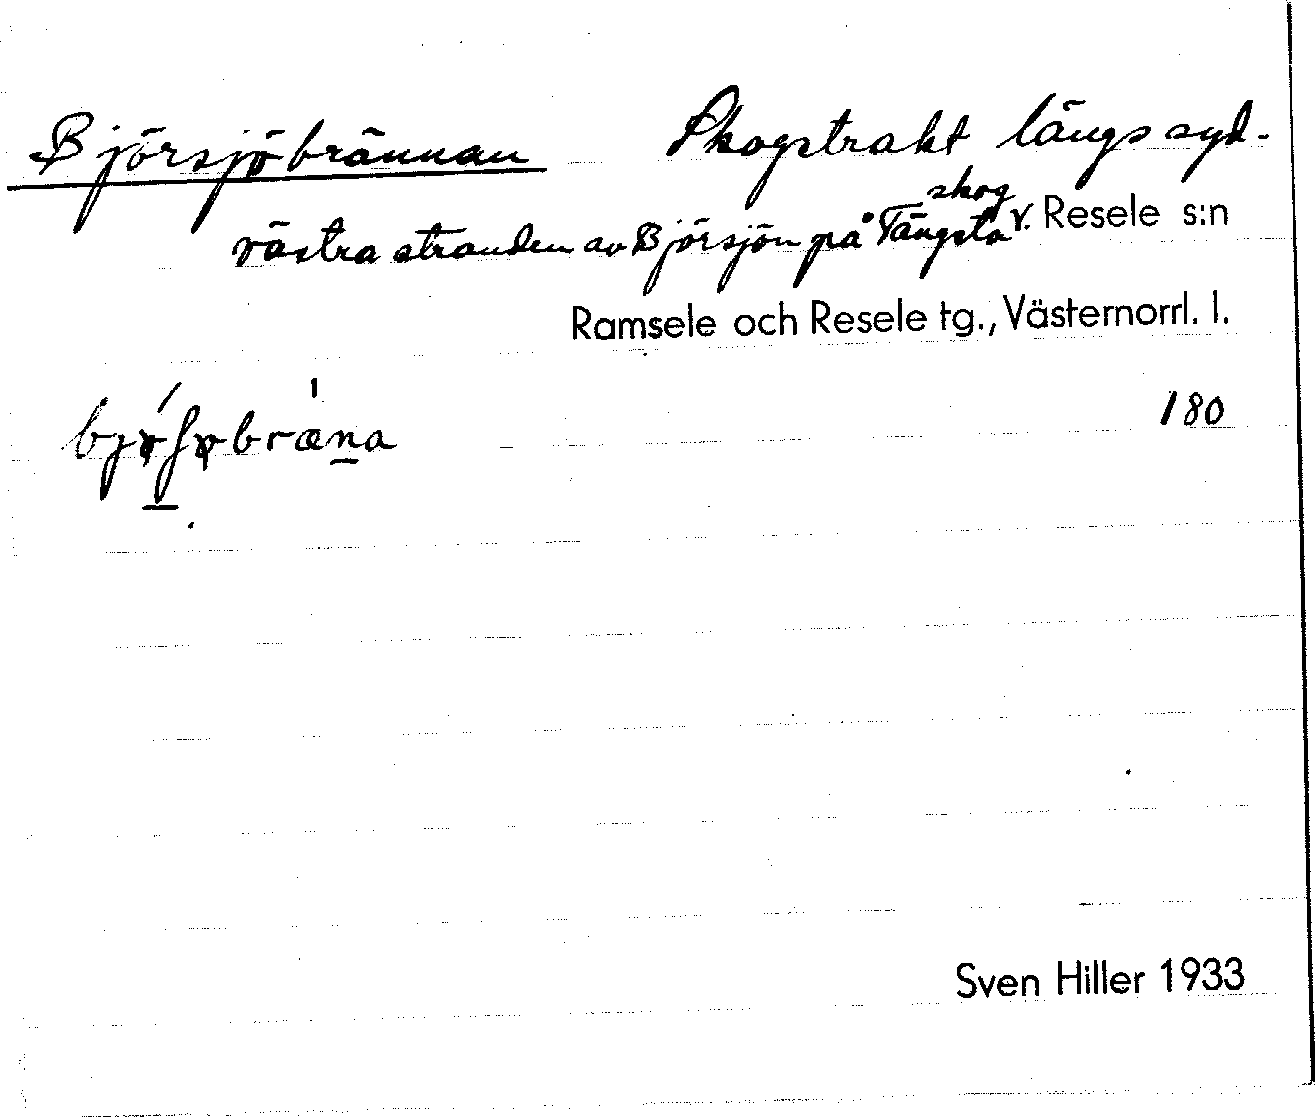 Björsjöbrännan Skogstrakt längs syd-
västra stranden av Björsjön på Tängsta skog v. Resele s:n
Ramsele och Resele tg., Västernorrl. l.
180
Sven Hiller 1933